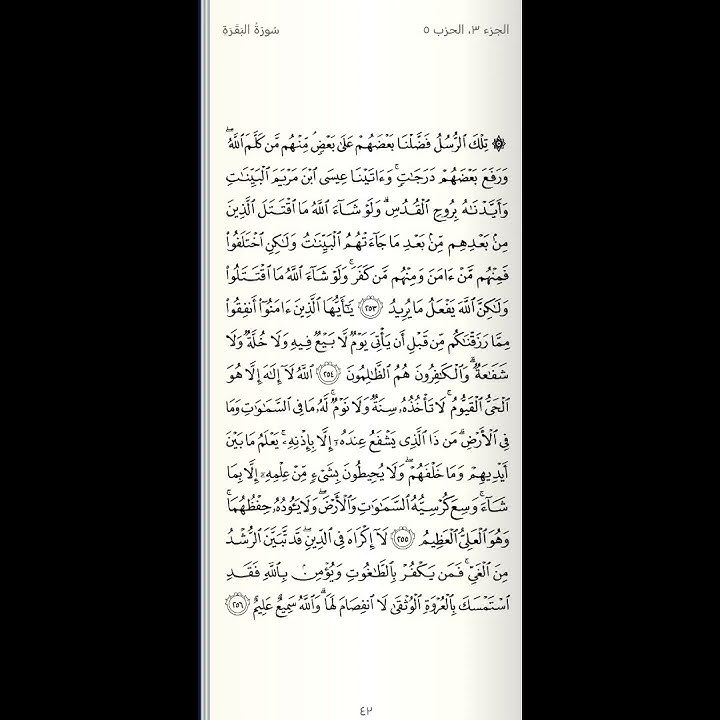 الجزء ٣، الحزب ٥
سُورَةُ البَقَرَةِ
۞ تِلْكَ ٱلرُّسُلُ فَضَّلْنَا بَعْضَهُمْ عَلَىٰ بَعْضٍۘ مِّنْهُم مَّن كَلَّمَ ٱللَّهُۖ
وَرَفَعَ بَعْضَهُمْ دَرَجَٰتٍۚ وَءَاتَيْنَا عِيسَى ٱبْنَ مَرْيَمَ ٱلْبَيِّنَٰتِ
وَأَيَّدْنَٰهُ بِرُوحِ ٱلْقُدُسِۗ وَلَوْ شَآءَ ٱللَّهُ مَا ٱقْتَتَلَ ٱلَّذِينَ
مِنۢ بَعْدِهِم مِّنۢ بَعْدِ مَا جَآءَتْهُمُ ٱلْبَيِّنَٰتُ وَلَٰكِنِ ٱخْتَلَفُوا۟
فَمِنْهُم مَّنْ ءَامَنَ وَمِنْهُم مَّن كَفَرَۚ وَلَوْ شَآءَ ٱللَّهُ مَا ٱقْتَتَلُوا۟
وَلَٰكِنَّ ٱللَّهَ يَفْعَلُ مَا يُرِيدُ ٢٥٣ يَٰٓأَيُّهَا ٱلَّذِينَ ءَامَنُوٓا۟ أَنفِقُوا۟
مِمَّا رَزَقْنَٰكُم مِّن قَبْلِ أَن يَأْتِىَ يَوْمٌ لَّا بَيْعٌ فِيهِ وَلَا خُلَّةٌ وَلَا
شَفَٰعَةٌۗ وَٱلْكَٰفِرُونَ هُمُ ٱلظَّٰلِمُونَ ٢٥٤ ٱللَّهُ لَآ إِلَٰهَ إِلَّا هُوَ
ٱلْحَىُّ ٱلْقَيُّومُۚ لَا تَأْخُذُهُۥ سِنَةٌ وَلَا نَوْمٌۚ لَّهُۥ مَا فِى ٱلسَّمَٰوَٰتِ وَمَا
فِى ٱلْأَرْضِۗ مَن ذَا ٱلَّذِى يَشْفَعُ عِندَهُۥٓ إِلَّا بِإِذْنِهِۦۚ يَعْلَمُ مَا بَيْنَ
أَيْدِيهِمْ وَمَا خَلْفَهُمْۖ وَلَا يُحِيطُونَ بِشَىْءٍ مِّنْ عِلْمِهِۦٓ إِلَّا بِمَا
شَآءَۚ وَسِعَ كُرْسِيُّهُ ٱلسَّمَٰوَٰتِ وَٱلْأَرْضَۖ وَلَا يَـُٔودُهُۥ حِفْظُهُمَاۚ
وَهُوَ ٱلْعَلِىُّ ٱلْعَظِيمُ ٢٥٥ لَآ إِكْرَاهَ فِى ٱلدِّينِۖ قَد تَّبَيَّنَ ٱلرُّشْدُ
مِنَ ٱلْغَىِّۚ فَمَن يَكْفُرْ بِٱلطَّٰغُوتِ وَيُؤْمِنۢ بِٱللَّهِ فَقَدِ
ٱسْتَمْسَكَ بِٱلْعُرْوَةِ ٱلْوُثْقَىٰ لَا ٱنفِصَامَ لَهَاۗ وَٱللَّهُ سَمِيعٌ عَلِيمٌ ٢٥٦
٤٢